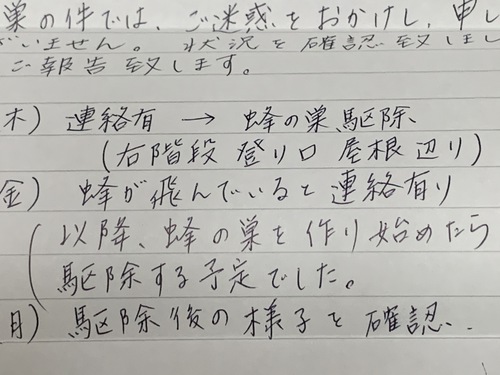 巣の件では、ご迷惑をおかけし、申し
ざいません。状況を確認致しまし
ご報告致します。
木) 連絡有 → 蜂の巣駆除、
(右階段 登り口 屋根辺り)
金) 蜂が飛んでいると連絡有り
(以降、蜂の巣を作り始めたら
駆除する予定でした。
月) 駆除後の様子を確認、